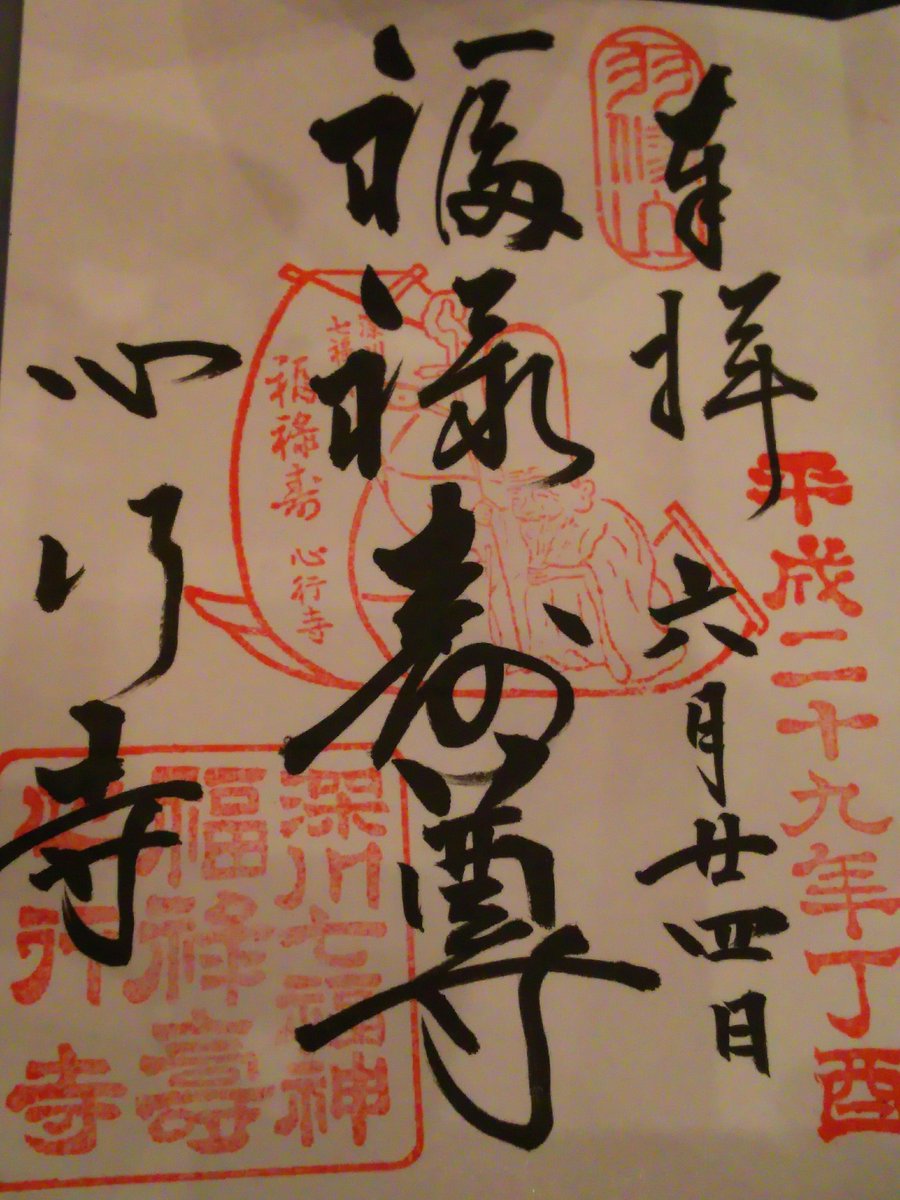 奉拝
六月廿四日
平成二十九年丁酉
福禄寿尊
心行寺
福禄寿
心行寺
深川七福神
福禄壽
心行寺